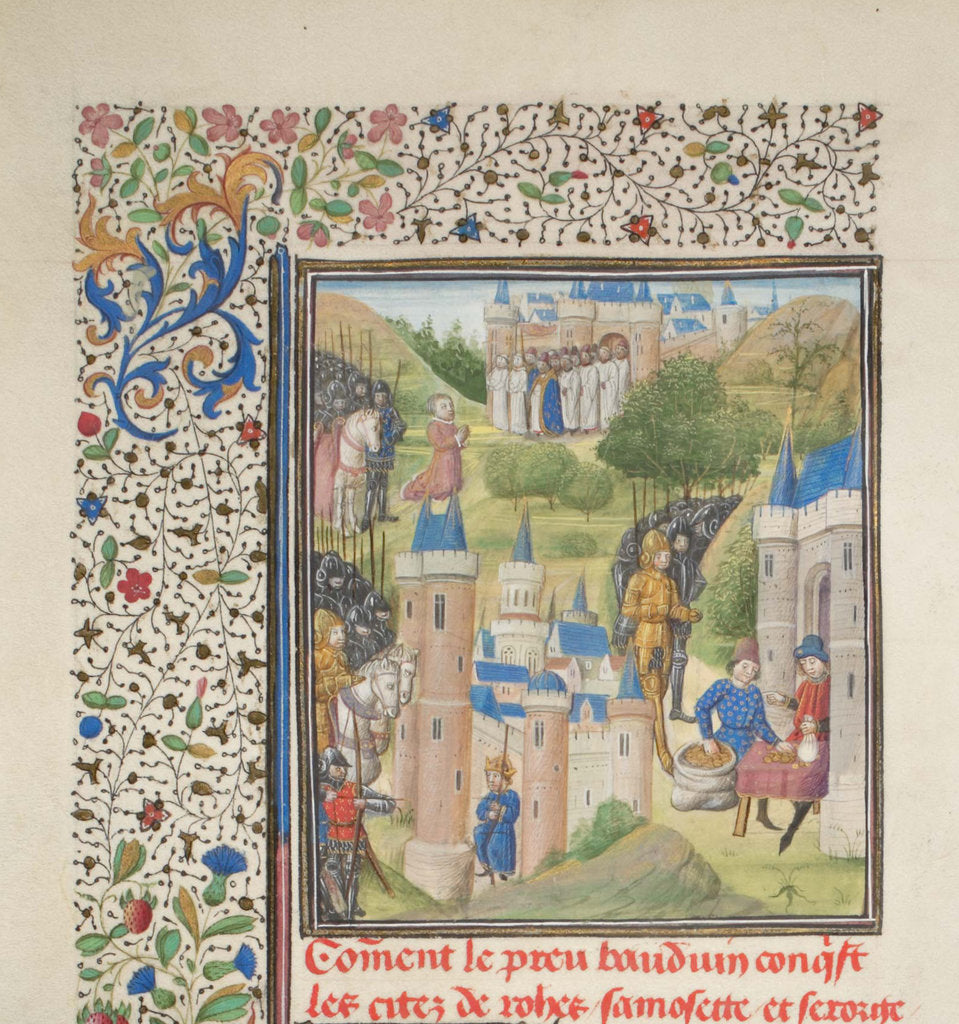 Com̃ent le preu bauduin conq̃st
les citez de rohes / samosette et serorge /